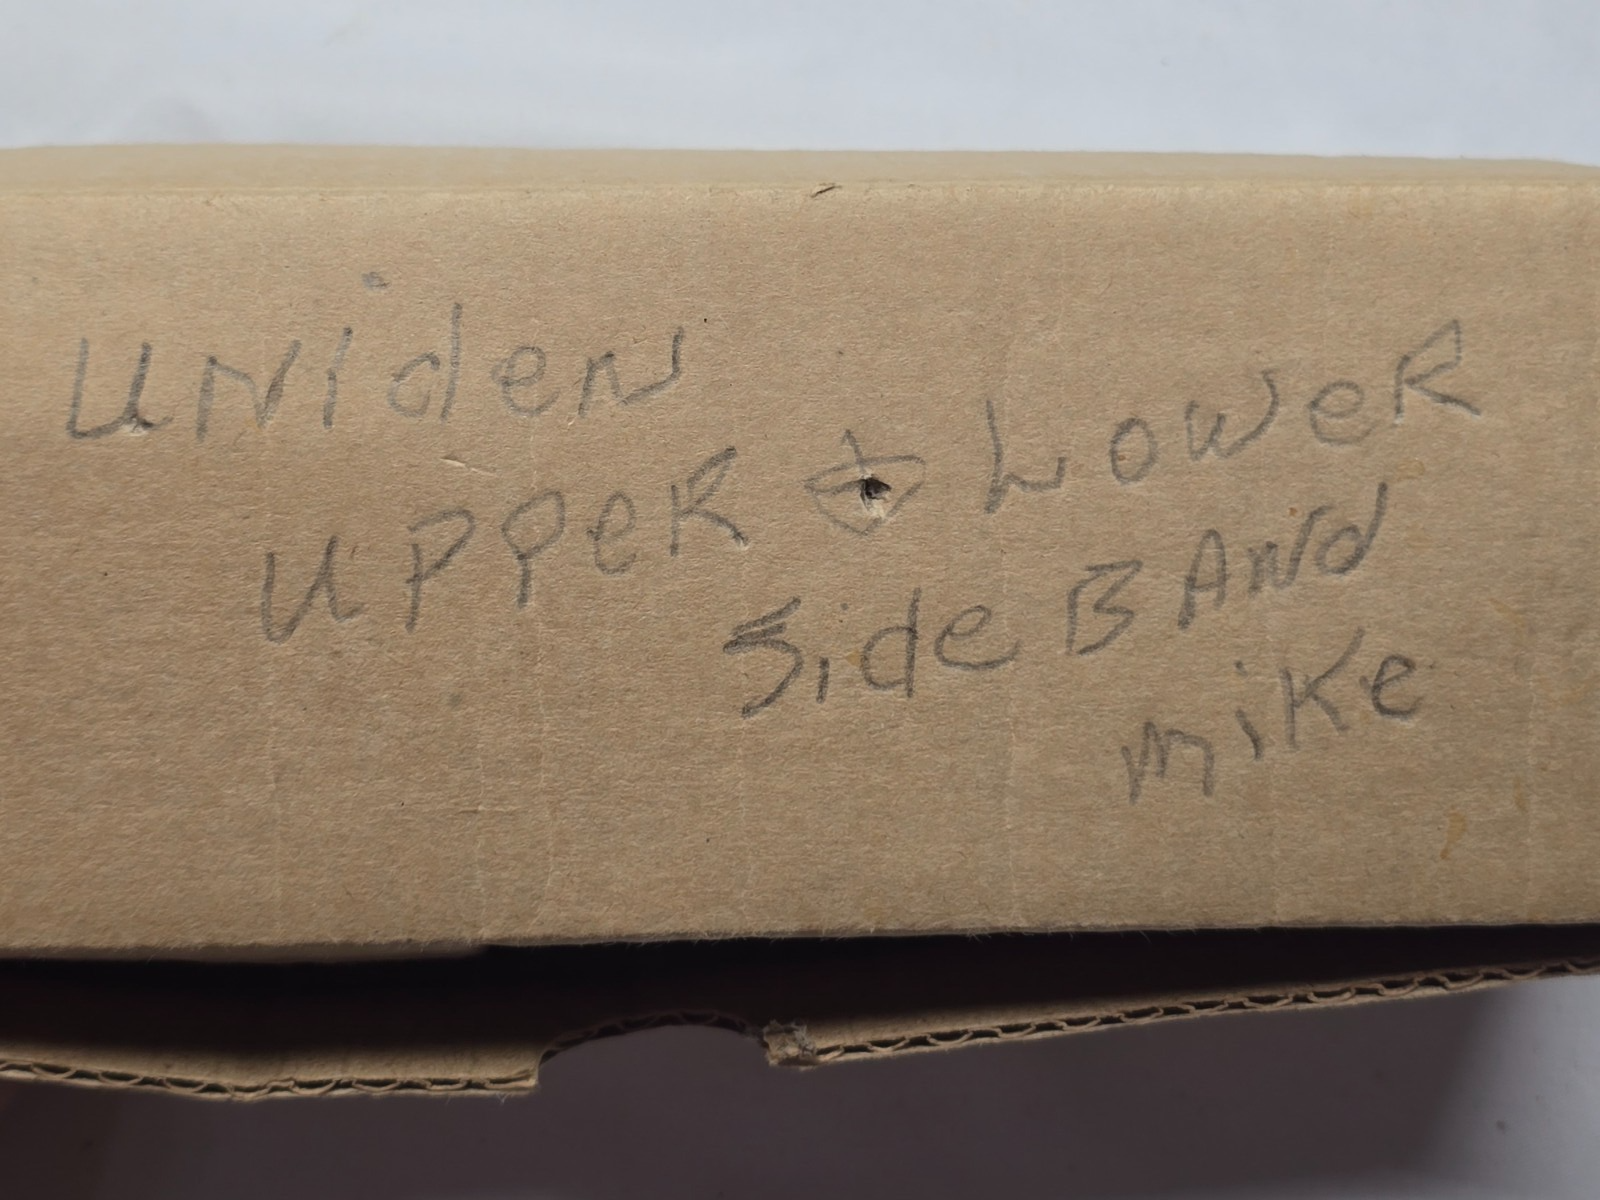 UNideN
UPPeR & LoweR
Side BANd
mike